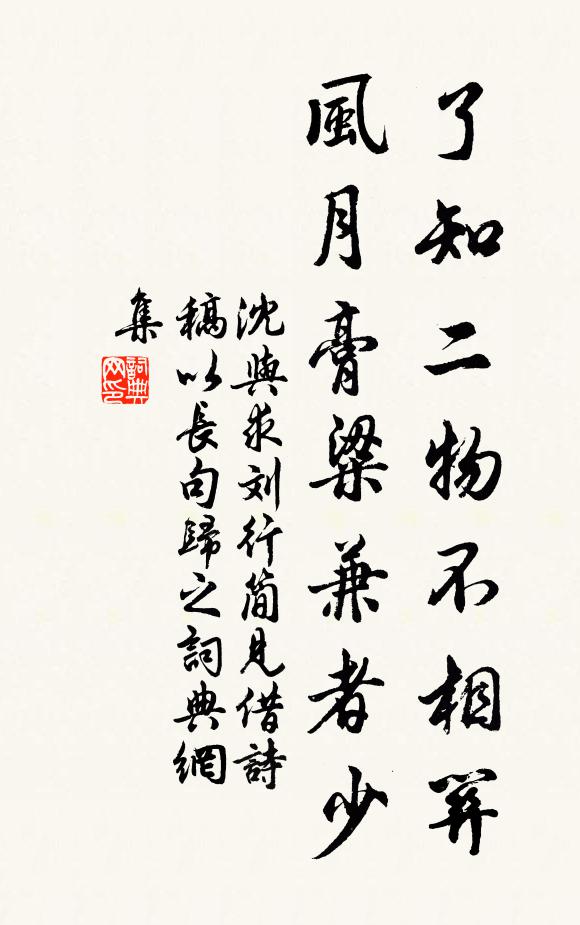 了知二物不相關
風月膏粱兼者少
沈與求刘行简見借詩
稿以長句歸之詞典網
集
詞典
网印